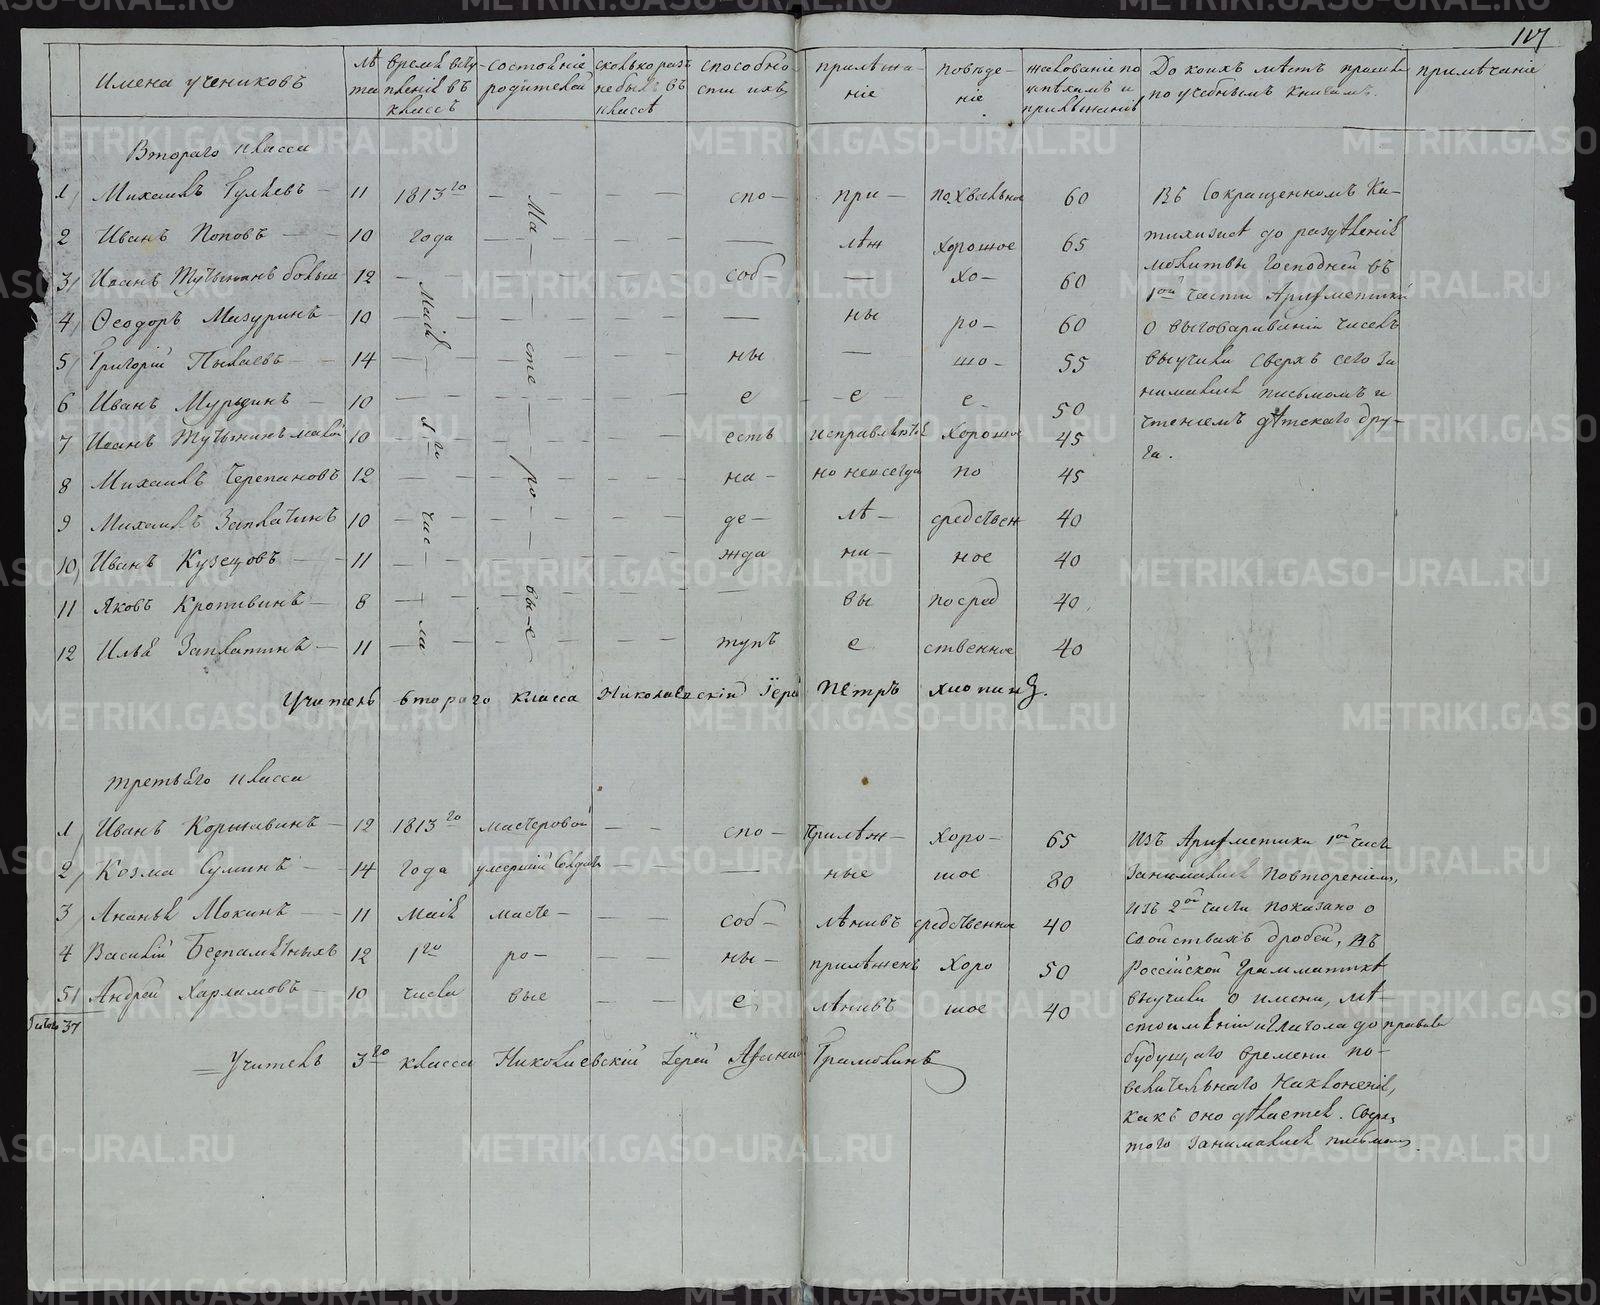 117
Имена учениковъ | лѣта | время вступленія въ классъ | состояніе родителей | сколько разъ небылъ въ классѣ | способности ихъ | прилѣжаніе | поведеніе | жалованіе по успѣхамъ и прилѣжанію | До коихъ мѣстъ прошли по учебнымъ книгамъ. | примѣчаніе
Втораго класса
1 Михаилъ 11 1813го спо- при- похвальное 60 Въ Сокращенномъ Ка-
2 Иванъ Поповъ 10 года Ма лѣж хорошое 65 тихизисѣ до раздѣленія
3 Иванъ больш 12 соб хо- 60 молитвы Господней въ
4 Ѳеодоръ Мазуринъ 10 Маія ны ро- 60 1ой части Ариѳметики
о выговариваніи чиселъ
5 Григорій 14 сте ны шо- 55 выучили сверхъ сего за
6 Иванъ 10 е е е 50 нимались письмомъ и
чтеніемъ дѣтскаго дру-
7 Иванъ малой 10 1го есть исправляется хорошое 45 га.
8 Михаилъ Черепановъ 12 ро на- но невсегда по 45
9 Михаилъ Заплатинъ 10 чис де- лѣ- средствен 40
10 Иванъ Кузецовъ 11 жда ни- ное 40
11 Яковъ Кропивинъ 8 вы-е вы посред 40
12 Илья Заплатинъ 11 ла тупъ е ственное 40
Учитель втораго класса Николаевскій Іерей Петръ Хлопинъ.
третьяго класса
1 Иванъ Коржавинъ 12 1813го мастеровой спо- Прилѣж- хоро- 65 Изъ Ариѳметики 1ой части
2 Козма Сулинъ 14 года умершій Солдатъ ные шое 80 занимались повтореніемъ,
3 Ананья Мокинъ 11 Маія масте- соб- лѣнивъ средственное 40 изъ 2ой части показано о
свойствахъ дробей, въ
4 Василій Безпамятныхъ 12 1го ро- ны- прилѣженъ хоро 50 Россійской Грамматикѣ
5 Андрей Харламовъ 10 числа вые е лѣнивъ шое 40 выучили о имени, мѣ-
Итого 37 стоименіи и Глагола до правила
Учитель 3го класса Николаевскій Іерей Грамолинъ будущаго времени по-
велительнаго наклоненія,
какъ оно дѣлается. Сверхъ
того занимались письмомъ
METRIKI.GASO-URAL.RU